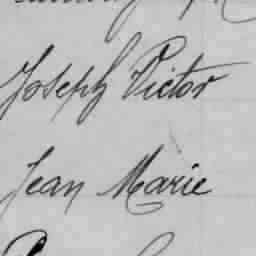 Joseph Victor
Jean Marie